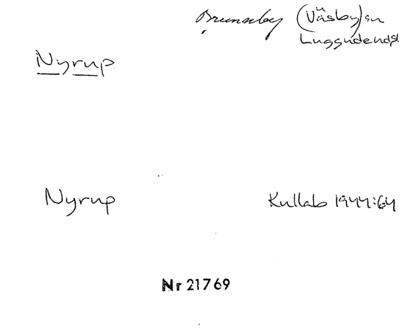 Brunnby (Väsby) sn
Luggudehd
Nyrup
Nyrup
Kullab 1944:64
Nr 21769